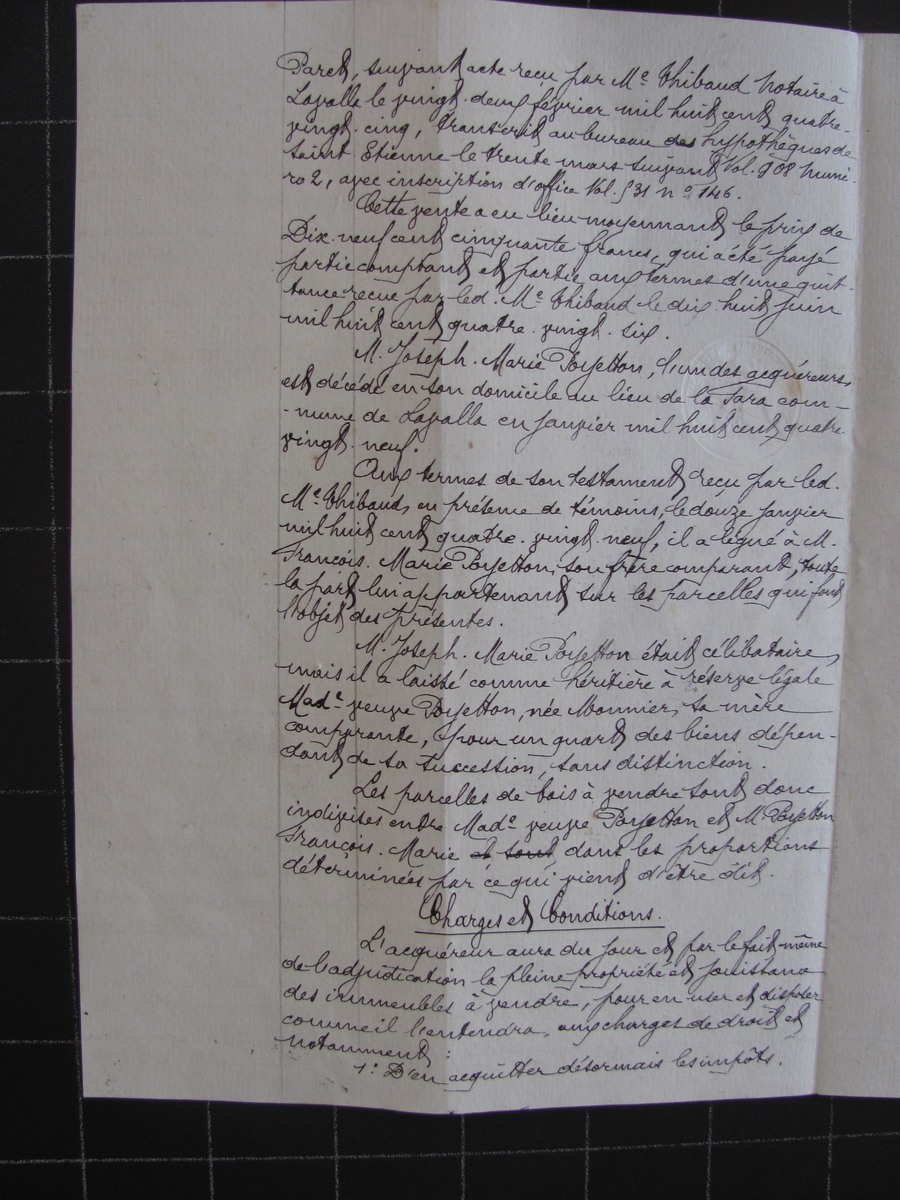 Paret, suivant acte reçu par Me Thibaud notaire à
Lavalla le vingt-deux février mil huit cent quatre-
vingt-cinq, transcrit au bureau des hypothèques de
Saint-Etienne le trente mars suivant Vol. 908 numé-
ro 2, avec inscription d'office Vol. 731 no 146.
Cette vente a eu lieu moyennant le prix de
Dix-neuf cent cinquante francs, qui a été payé
partie comptant et partie aux termes d'une quit-
tance reçue par led. Me Thibaud le dix-huit juin
mil huit cent quatre-vingt-six.
M. Joseph-Marie Poyetton, l'un des acquéreurs,
est décédé en son domicile au lieu de la Fara com-
-mune de Lavalla en janvier mil huit cent quatre
vingt-neuf.
Aux termes de son testament reçu par led.
Me Thibaud, en présence de témoins, le douze janvier
mil huit cent quatre-vingt-neuf, il a légué à M.
François-Marie Poyetton, son frère comparant, toute
la part lui appartenant sur les parcelles qui font
l'objet des présentes.
M. Joseph-Marie Poyetton était célibataire,
mais il a laissé comme héritière à réserve légale
Made veuve Poyetton, née Monnier, sa mère
comparante, pour un quart des biens dépen-
dant de sa succession, sans distinction.
Les parcelles de bois à vendre sont donc
indivises entre Made veuve Poyetton et M. Poyetton
François-Marie et sont dans les proportions
déterminées par ce qui vient d'être dit.
Charges et Conditions.
L'acquéreur aura du jour et par le fait même
de l'adjudication la pleine propriété et jouissance
des immeubles à vendre, pour en user et disposer
comme il l'entendra, aux charges de droit et
notamment :
1° D'en acquitter désormais les impôts.